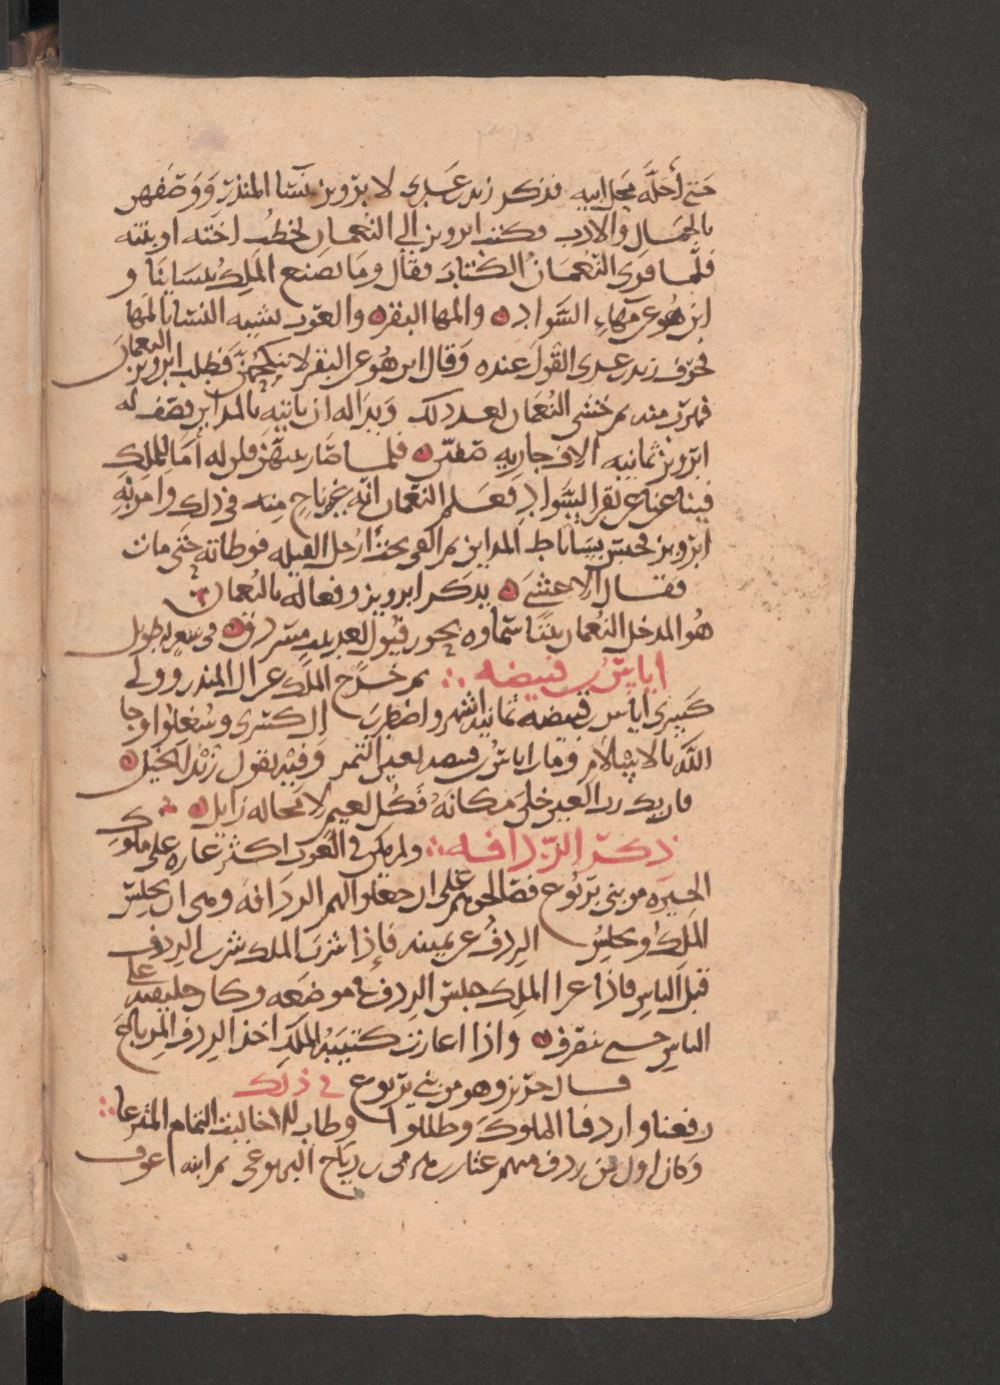 حتى أحله محل ابيه فذكر زيد بن عدي لابرويز نسا المنذر ووصفهن
بالجمال والادب فكتب ابرويز إلى النعمان يخطب اخته او بنته
فلما قرى النعمان الكتاب فقال وما يصنع الملك بنساينا و
اين هو عن مهاء السواد والمها البقر والعرب تشبه النسا بالمها
فحرف زيد بن عدي القول عنده وقال اين هو عن البقر لا ينكحهن فطلب ابرويز النعمان
فهرب منه ثم خشى النعمان بعد ذلك وبدا له ان ياتيه بالمداين فصف له
ابرويز ثمانيه الاف جاريه صفين فلما صار بينهن قلن له أما للملك
فينا غنا عن بقر السواد فعلم النعمان انه غير ناج منه في ذلك وامر به
ابرويز فحبس بساباط المداين ثم القى تحت أرجل الفيله فوطاته حتى مات
فقال الاعشى يذكر ابرويز وفعاله بالنعمان
هو المدخل النعمان بيتا سماوه نحور فيول بعد بيت مسردق في شعر له طويل
اياس بن قبيصه ثم خرج الملك عن ال المنذر وولى
كسرى اياس بن قبيصه ثمانيه اشهر واضطرب ال كسرى وشغلوا وجا
الله بالاسلام ومات اياس بن قبيصه بعين التمر وفيه يقول زيد الخيل
فان يك رب العين خلى مكانه فكل نعيم لا محاله زايل
ذكر الردافه ولم يكن في العرب اكثر غاره على ملوك
الحيره من بني يربوع فصالحوهم على ان جعلوا لهم الردافه وهي ان يجلس
الملك ويجلس الردف عن يمينه فإذا شرب الملك شرب الردف
قبل الناس فاذا غزا الملك جلس الردف في موضعه وكان خليفته على
الناس حتى ينصرف واذا اغارت كتيبة الملك اخذ الردف المرباع
قال جرير وهو من بني يربوع في ذلك
ربعنا واردفنا الملوك وظللوا وطاب الاحاليب الثمام المنزعا
وكان اول من ردف منهم عتاب بن هرمي بن رياح اليربوعي ثم ابنه عوف